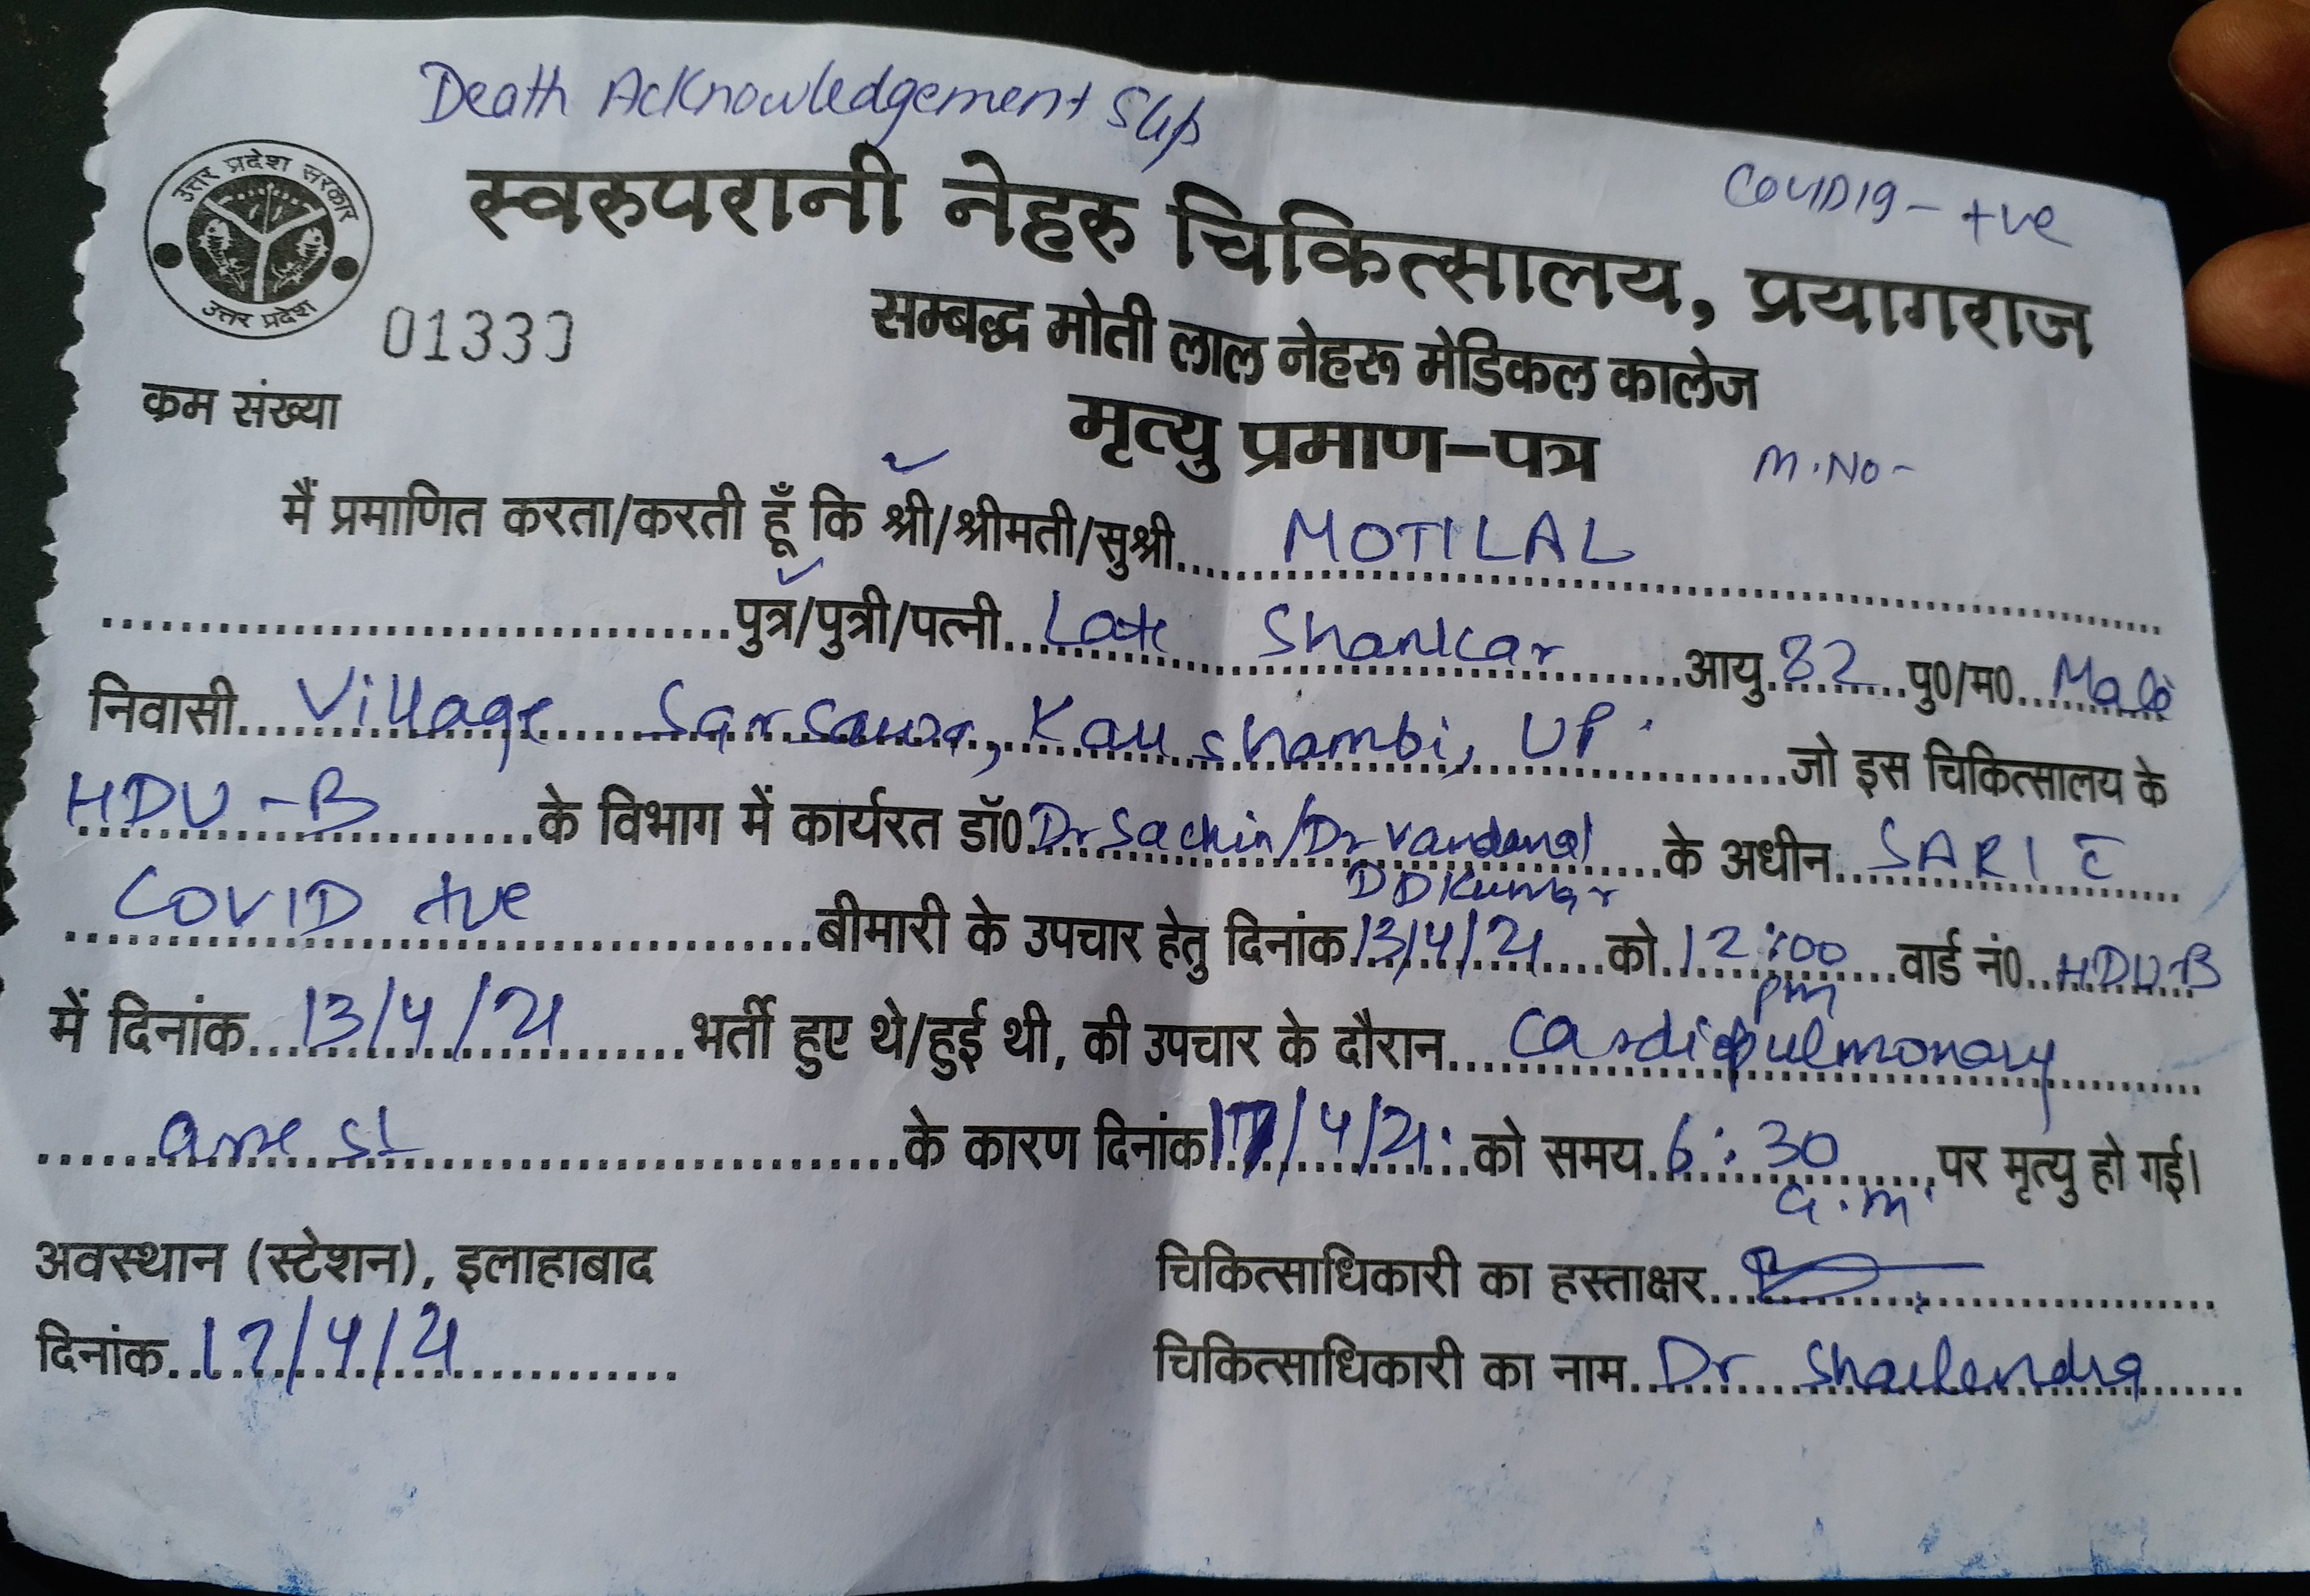 Death Acknowledgement Slip
COVID19 - +ve
स्वरुपरानी नेहरु चिकित्सालय, प्रयागराज
उत्तर प्रदेश सरकार
उत्तर प्रदेश
सम्बद्ध मोती लाल नेहरू मेडिकल कालेज
क्रम संख्या
मृत्यु प्रमाण-पत्र
M.No-
मैं प्रमाणित करता/करती हूँ कि श्री/श्रीमती/सुश्री MOTILAL
पुत्र/पुत्री/पत्नी Late Shankar आयु 82 पु0/म0 Male
निवासी Village Sarsawa, Kaushambi, UP. जो इस चिकित्सालय के
HDU-B के विभाग में कार्यरत डॉ0 Dr Sachin/Dr Vandana/ के अधीन SARI c̄
DD Kumar
COVID +ve बीमारी के उपचार हेतु दिनांक 13/4/21 को 12:00 वार्ड नं0 HDU-B
pm
में दिनांक 13/4/21 भर्ती हुए थे/हुई थी, की उपचार के दौरान Cardiopulmonary
arrest के कारण दिनांक 17/4/21 को समय 6:30 पर मृत्यु हो गई।
a.m.
अवस्थान (स्टेशन), इलाहाबाद
चिकित्साधिकारी का हस्ताक्षर
दिनांक 17/4/21
चिकित्साधिकारी का नाम Dr Shailendra